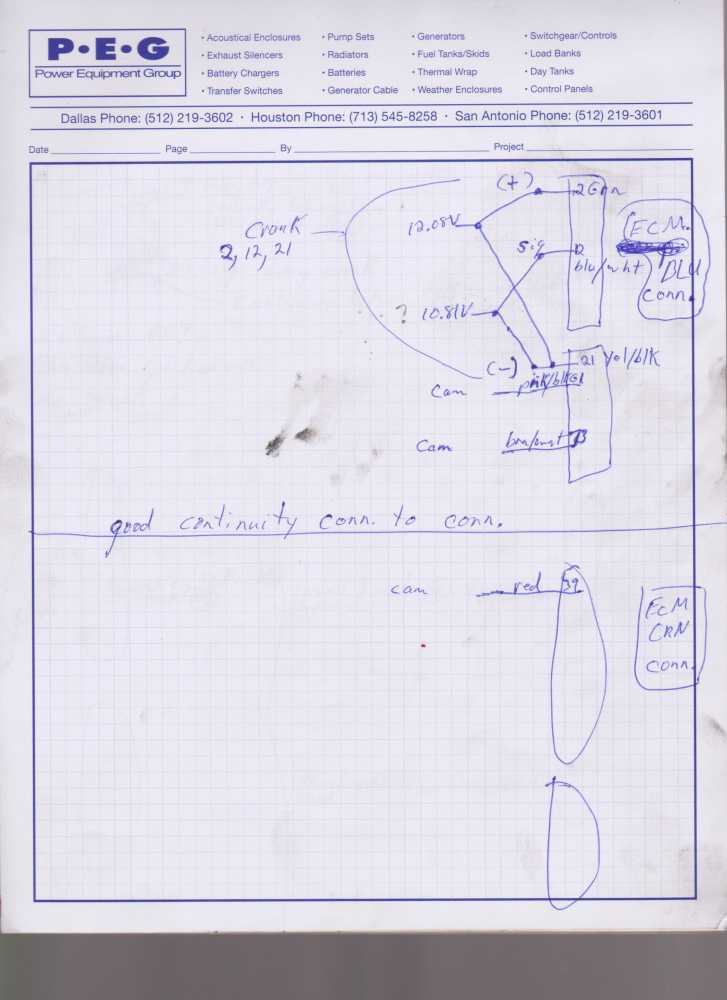 P•E•G
Power Equipment Group
• Acoustical Enclosures
• Exhaust Silencers
• Battery Chargers
• Transfer Switches
• Pump Sets
• Radiators
• Batteries
• Generator Cable
• Generators
• Fuel Tanks/Skids
• Thermal Wrap
• Weather Enclosures
• Switchgear/Controls
• Load Banks
• Day Tanks
• Control Panels
Dallas Phone: (512) 219-3602 · Houston Phone: (713) 545-8258 · San Antonio Phone: (512) 219-3601
Date Page By Project
(+) 2 Grn
Crank
2, 12, 21
12.08V
sig 12
blu/wht
ECM.
BLU
conn.
? 10.81V
(-) 21 yel/blk
Cam pink/blk
Cam
good continuity conn. to conn.
cam red 39
ECM
CRN
conn.